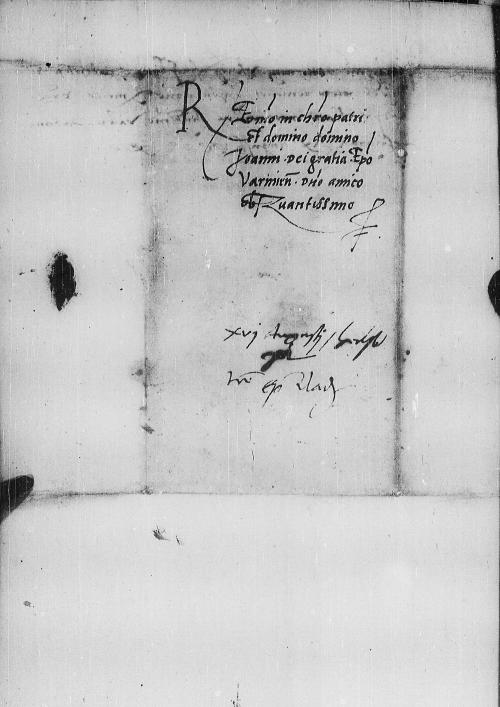 R Emo in chro patri
Et domino domino
Joanni Dei gratia Epo
Varmien. Dno amico
obseruantissimo
xvj Augusti